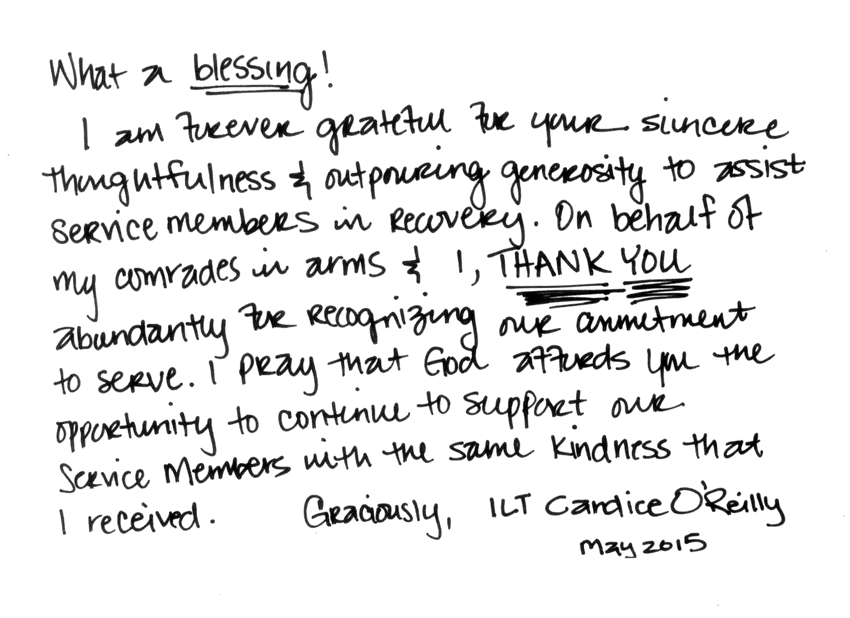 What a blessing!
I am forever grateful for your sincere
thoughtfulness & outpouring generosity to assist
service members in recovery. On behalf of
my comrades in arms & I, THANK YOU
abundantly for recognizing our commitment
to serve. I pray that God affords you the
opportunity to continue to support our
Service Members with the same kindness that
I received. Graciously, 1LT Candice O'Reilly
May 2015